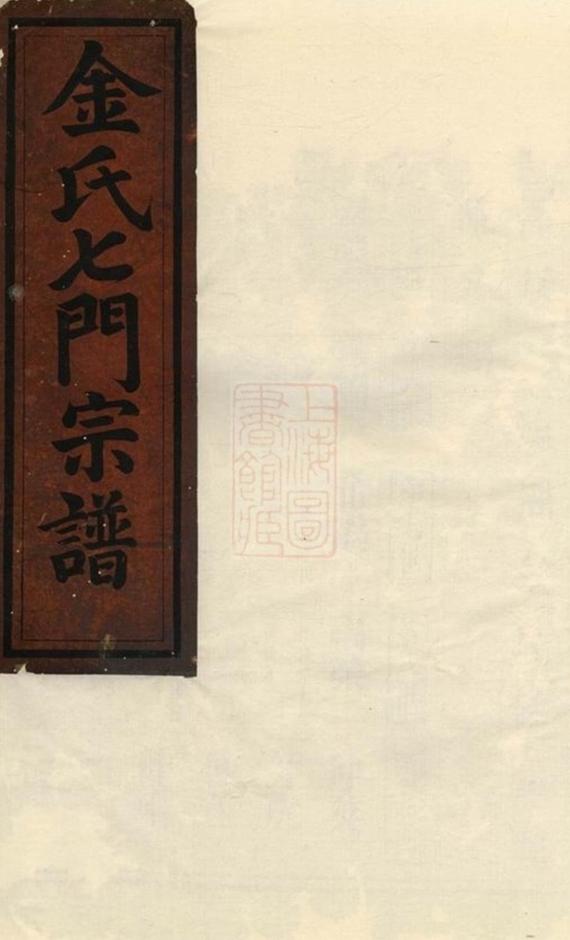 金氏七門宗譜
上海圖
書館藏